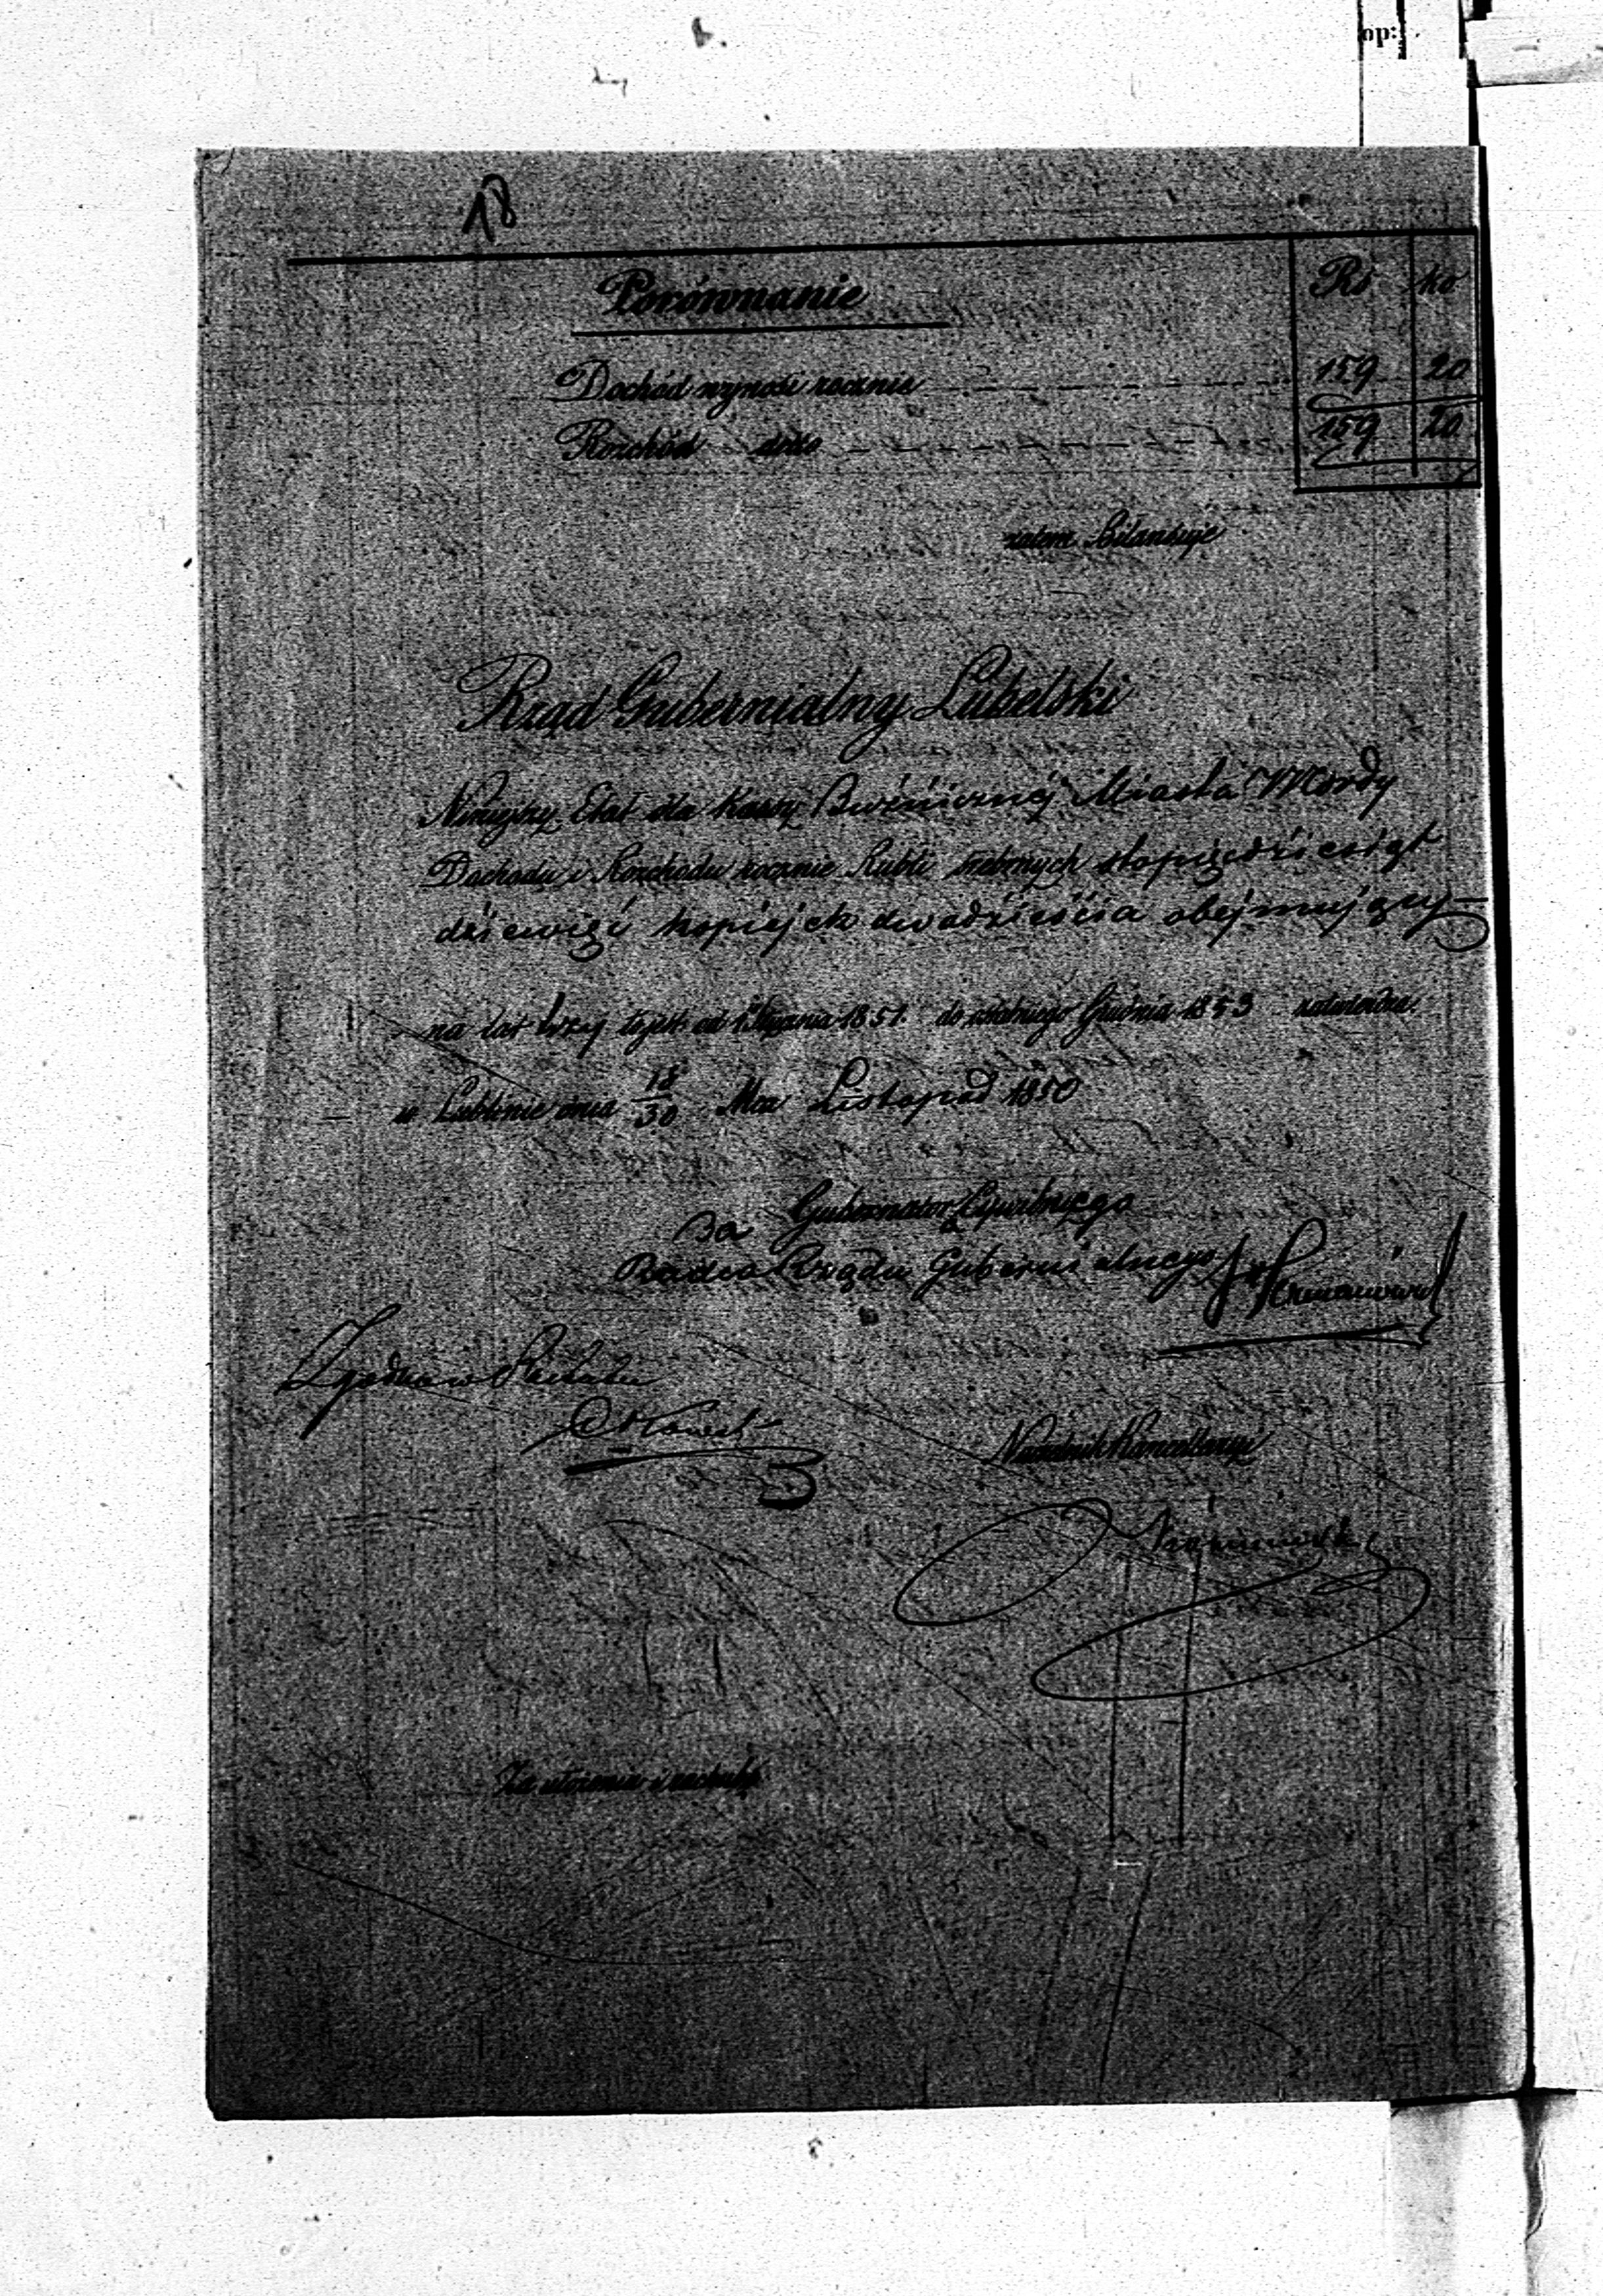 op:
18
Porównanie
Rs ko
Dochód wynosi rocznie 159 20
Rozchód dtto 159 20
zatem Bilansuje
Rząd Gubernialny Lubelski
Niniejszy Etat dla Kassy Bożniczney Miasta Mordy
Dochodu i Rozchodu rocznie Rubli srebrnych stopięćdziesiąt
dziewięć kopiejek dwadzieścia obejmujący
na lat trzy to jest od 1 Stycznia 1851. do ostatniego Grudnia 1853 zatwierdza.
w Lublinie dnia 18/30 Mca Listopad 1850
Za Gubernatora Cywilnego
Radca Rządu Gubernialnego
Zgodno w
Naczelnik Kancellaryi